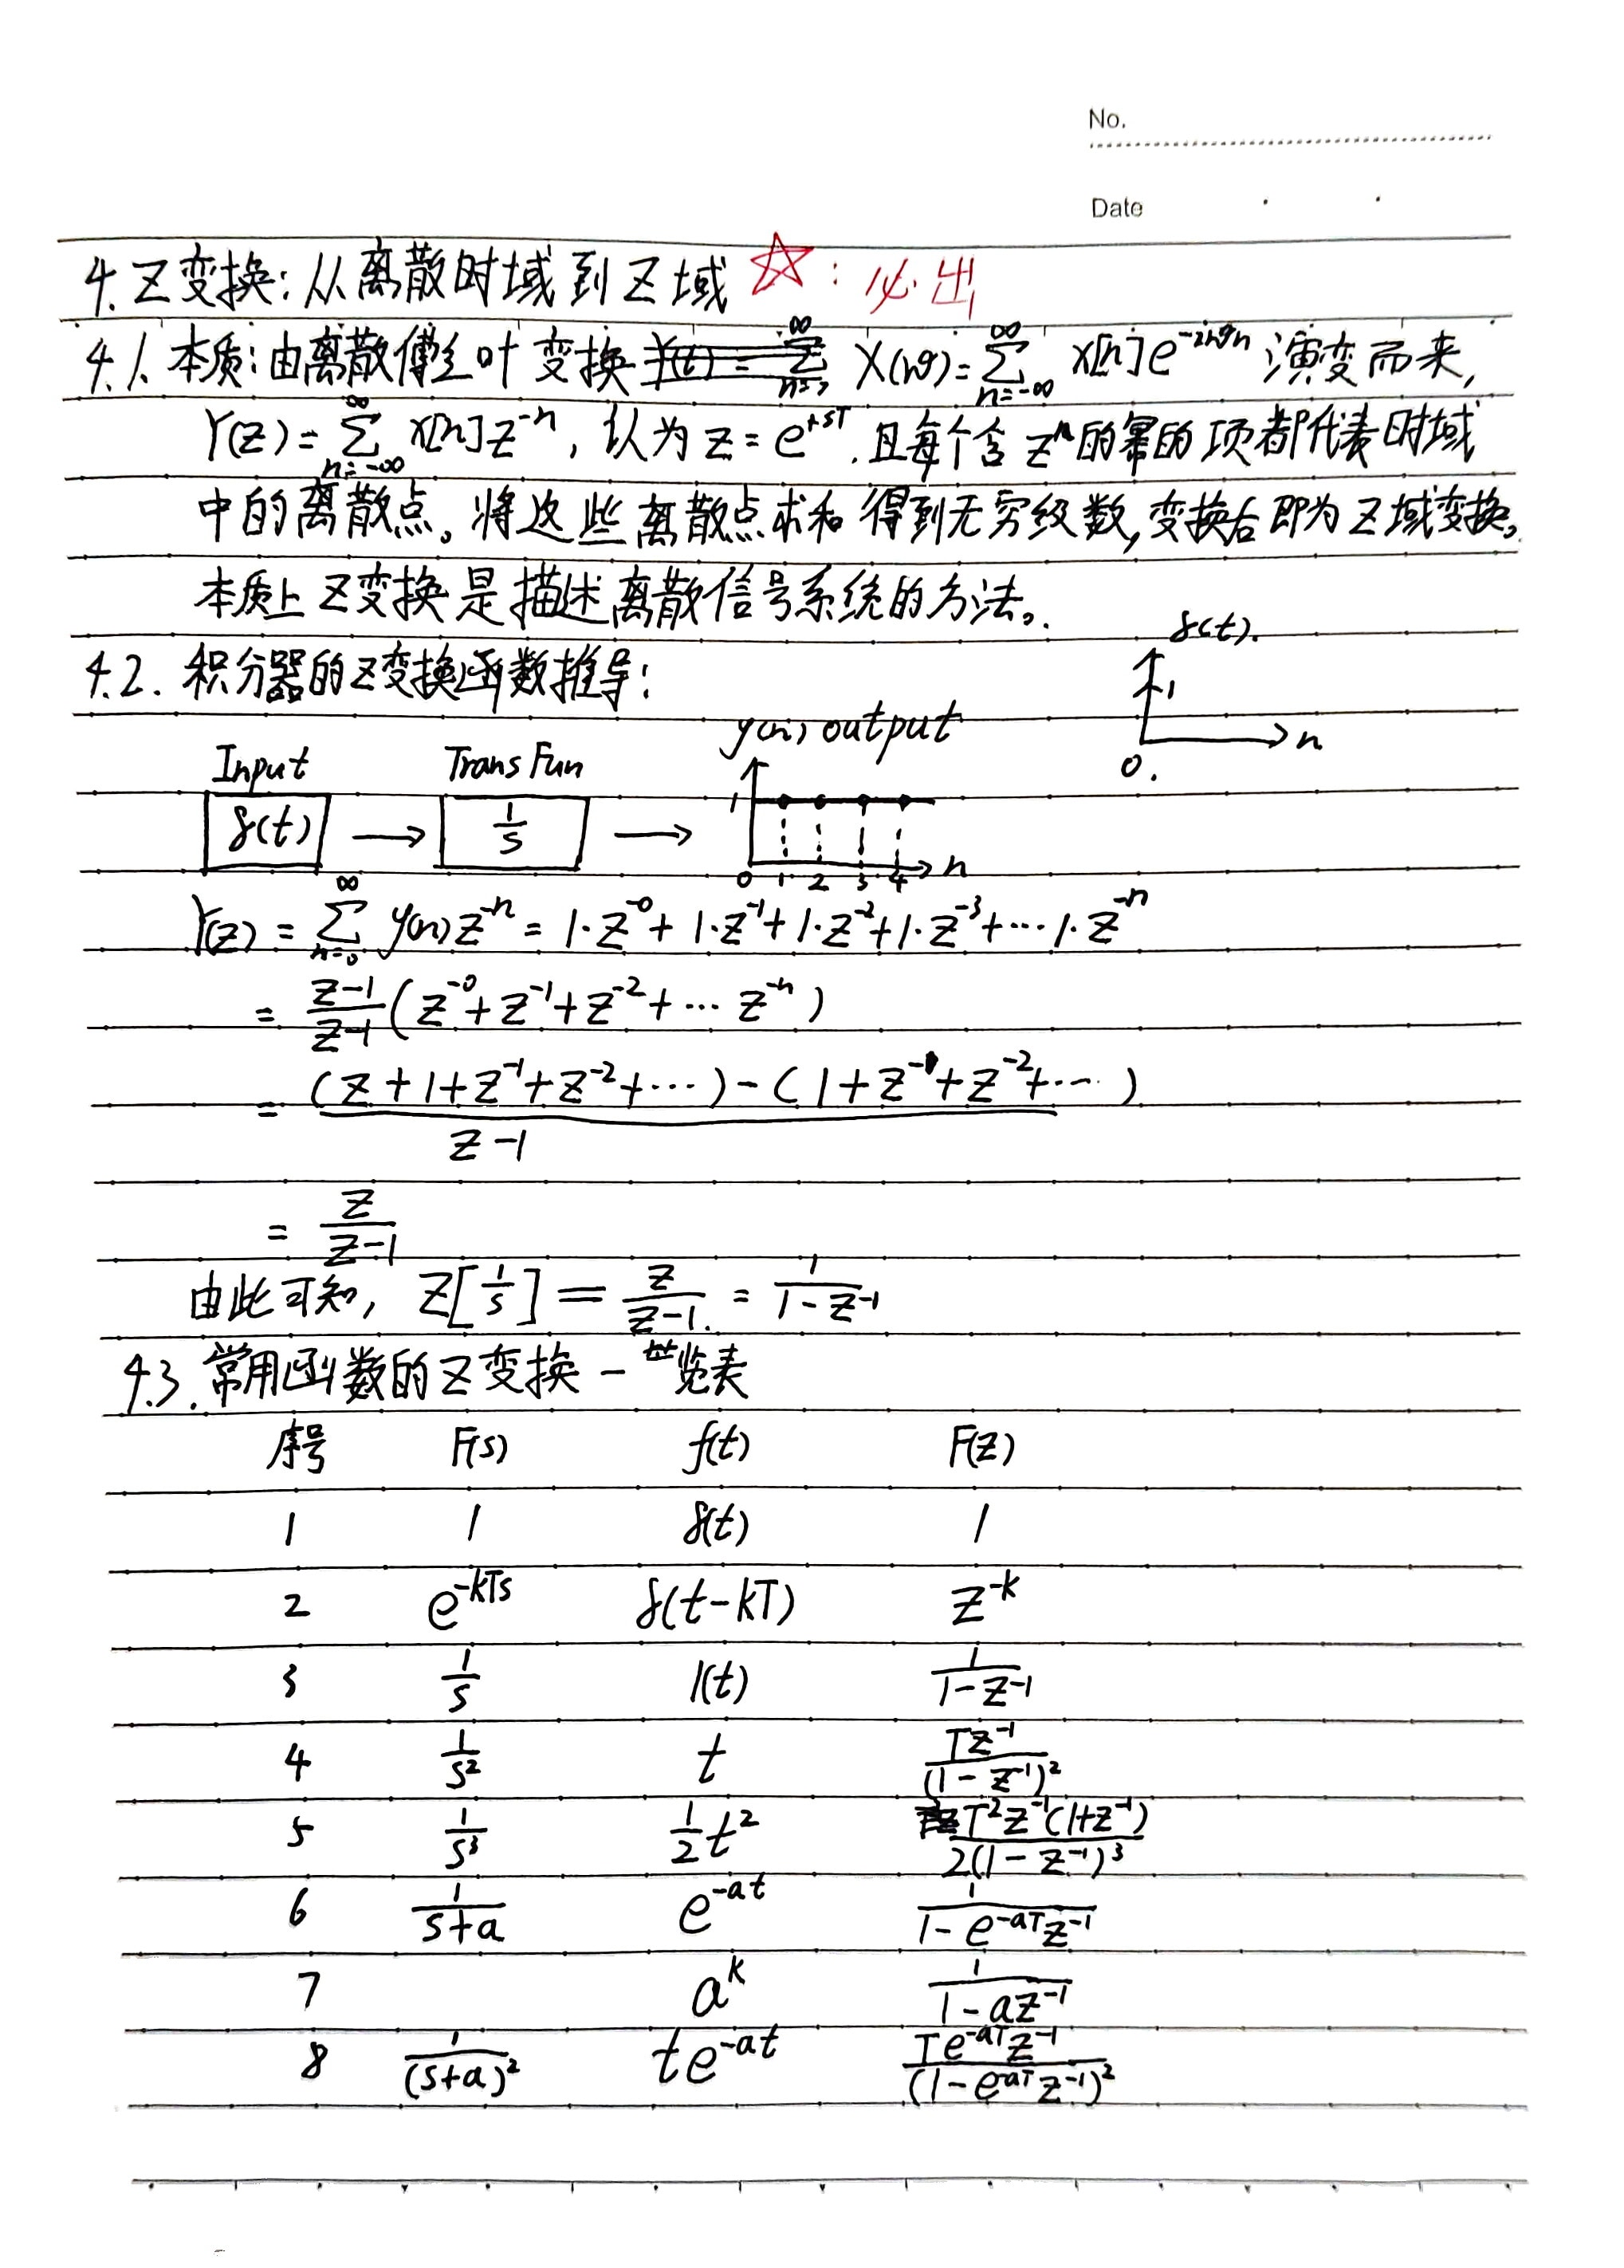 No.
Date
4. Z变换：从离散时域到Z域 ☆：必出
4.1. 本质：由离散傅立叶变换 X(nθ)=∑_{n=-∞}^{∞} x[n]e^{-inθn} 演变而来，
Y(z)=∑_{n=-∞}^{∞} x[n]z^{-n}，认为z=e^{+sT}，且每个含z^n的幂的项都代表时域
中的离散点。将这些离散点求和得到无穷级数，变换后即为Z域变换。
本质上Z变换是描述离散信号系统的方法。
4.2. 积分器的Z变换函数推导：
δ(t).
1
n
0.
Input
Trans Fun
y(n) output
δ(t) → 1/s →
1
0 1 2 3 4 n
Y(z) = ∑_{n=0}^{∞} y(n)z^{-n} = 1·z^{-0} + 1·z^{-1} + 1·z^{-2} + 1·z^{-3} + ··· 1·z^{-n}
= (z-1)/(z-1) (z^{-0} + z^{-1} + z^{-2} + ··· z^{-n})
= ((z+1+z^{-1}+z^{-2}+···) - (1+z^{-1}+z^{-2}+···))/(z-1)
= z/(z-1)
由此可知，Z[1/s] = z/(z-1). = 1/(1-z^{-1})
4.3. 常用函数的Z变换一览表
序号 F(s) f(t) F(z)
1 1 δ(t) 1
2 e^{-kTs} δ(t-kT) z^{-k}
3 1/s 1(t) 1/(1-z^{-1})
4 1/s^2 t Tz^{-1}/(1-z^{-1})^2
5 1/s^3 1/2 t^2 T^2z^{-1}(1+z^{-1})/2(1-z^{-1})^3
6 1/(s+a) e^{-at} 1/(1-e^{-aT}z^{-1})
7 a^k 1/(1-az^{-1})
8 1/(s+a)^2 te^{-at} Te^{-aT}z^{-1}/(1-e^{-aT}z^{-1})^2